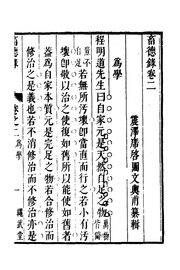 畜德錄卷二
震澤席啓圖文輿甫纂輯
為學
程明道先生曰自家元是天然自足之物
若無所污壞即當直而行之若小有污
壞即敬以治之使復如舊所以能使如舊者
蓋為自家本質元是完足之物若合修治而
修治之是義也若不消修治而不修治亦是
畜德錄
卷之二 為學
一